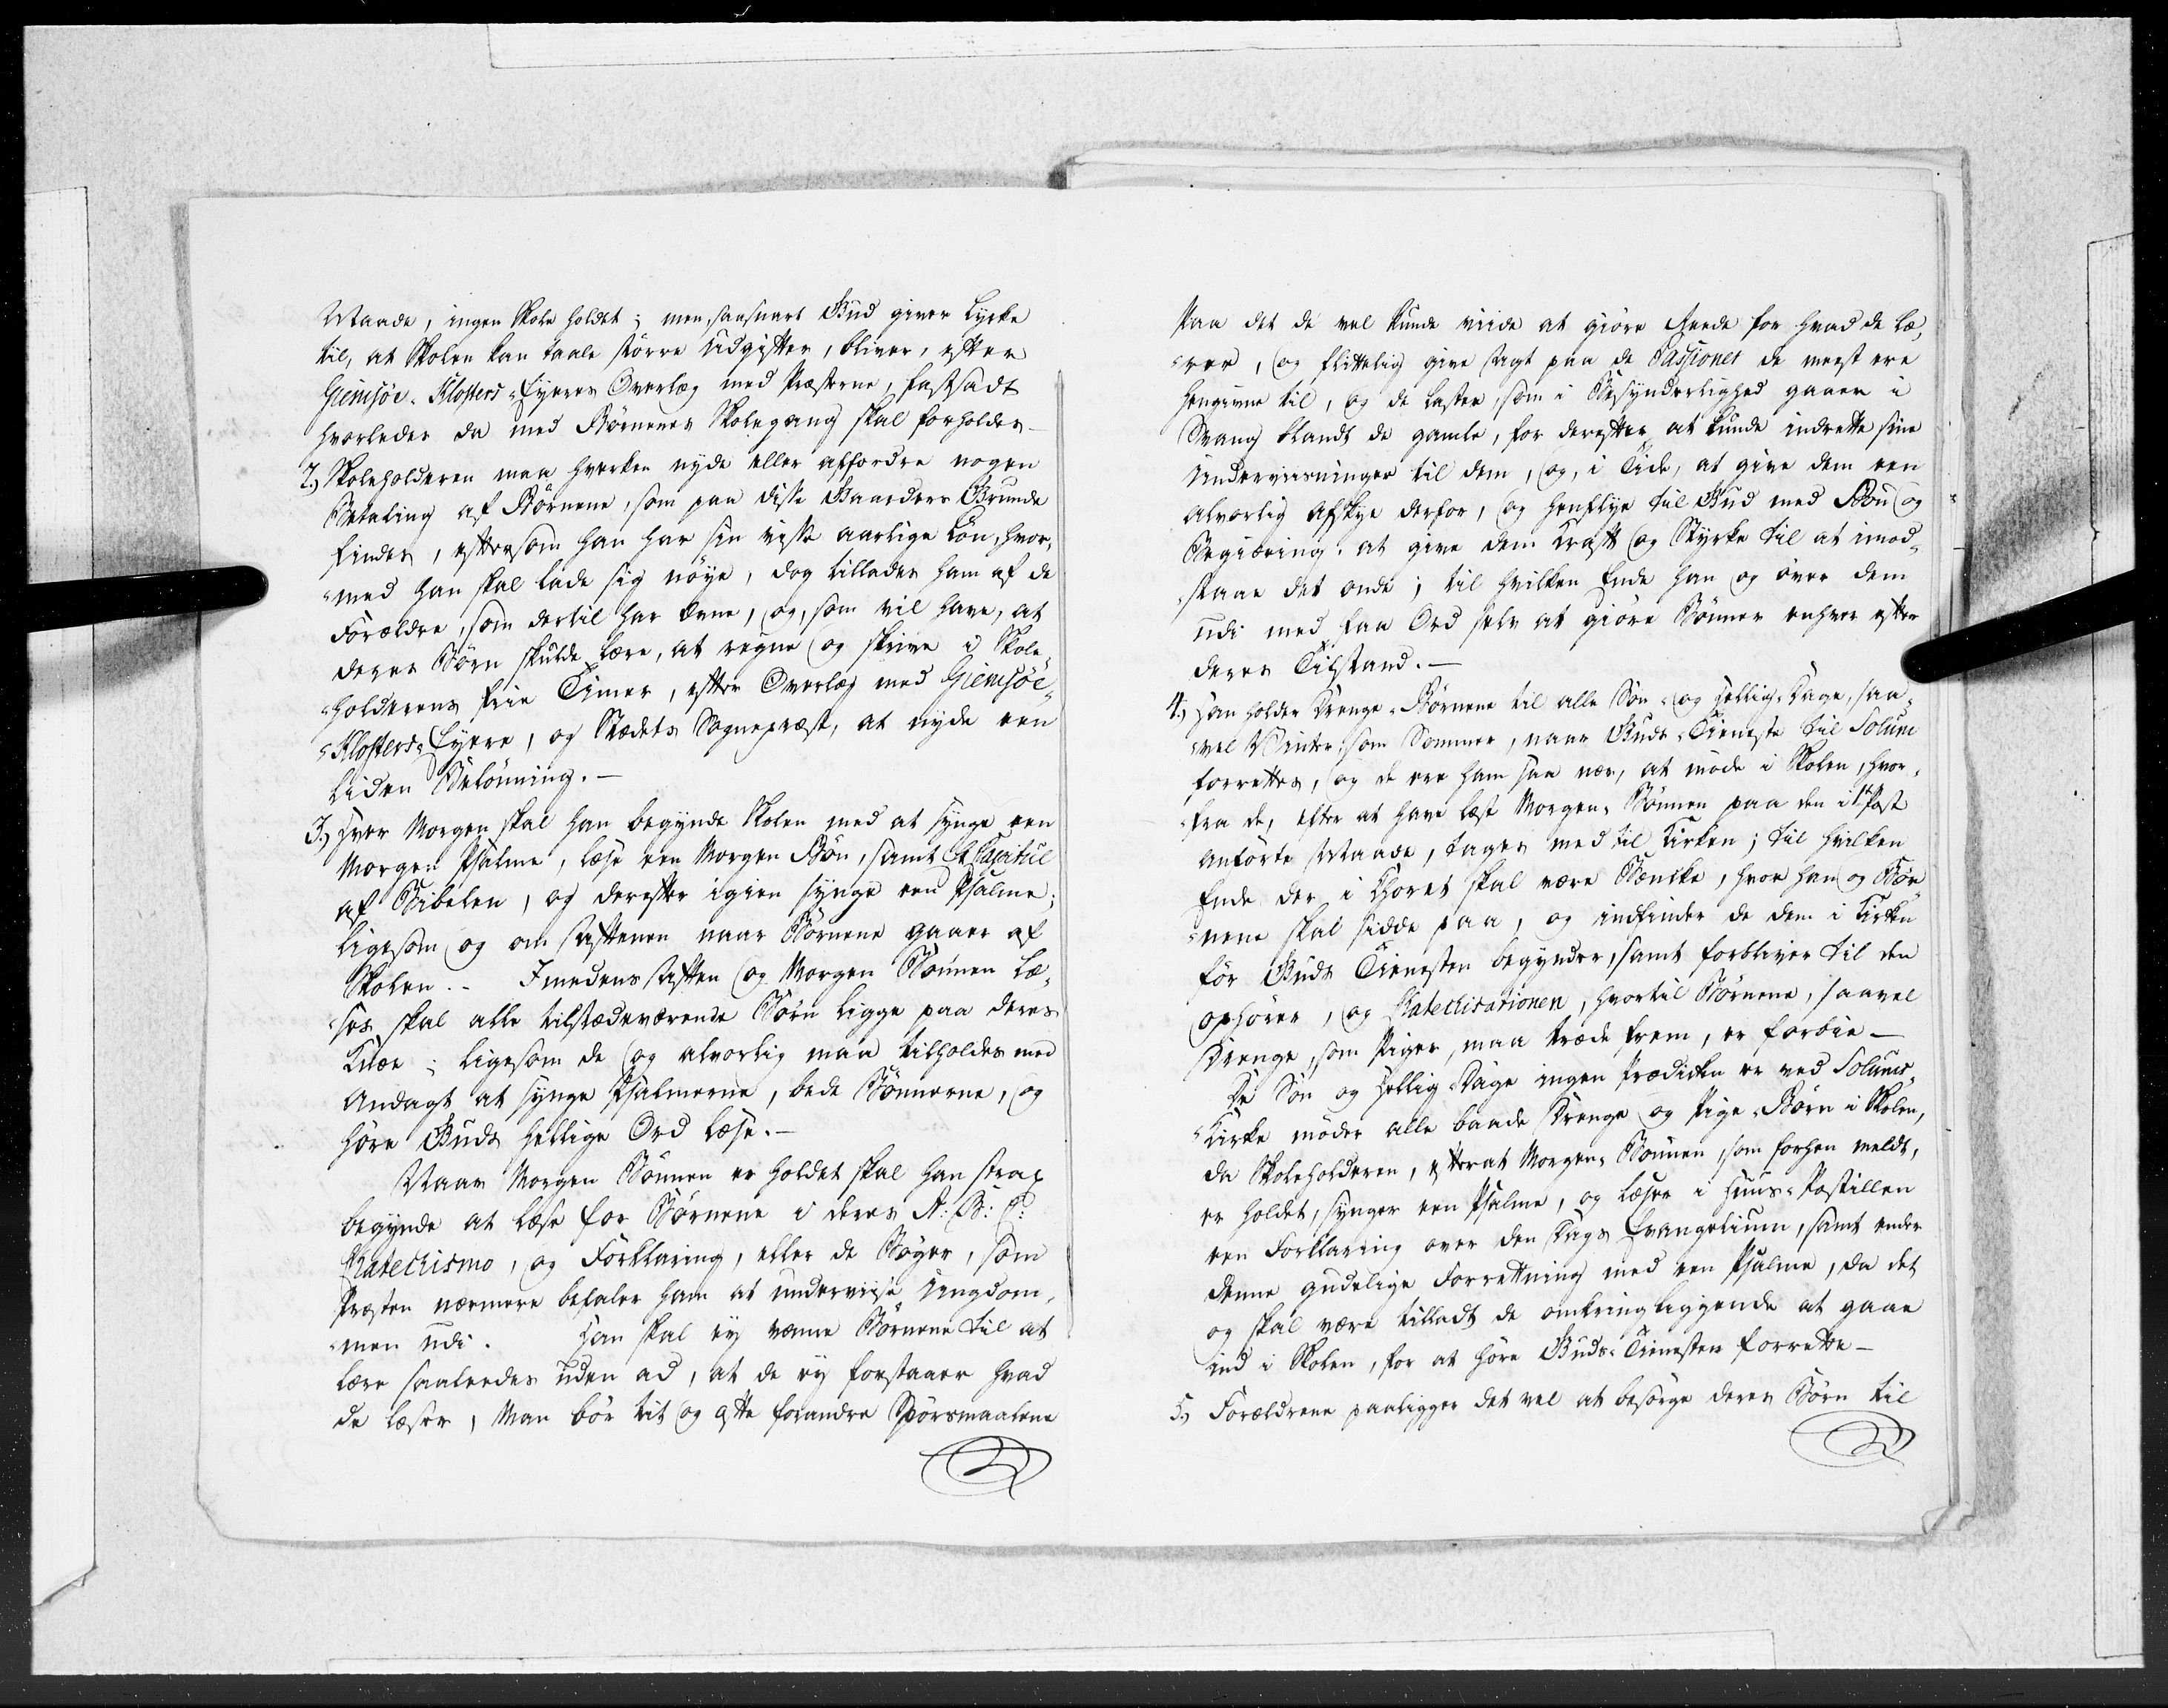 Maade, ingen Skole holdet; men, saasnart Gud giver Lykke
til, at Skolen kan taale större Udgifter, bliver, efter
Giemsöe-Klosters-Eyeres Overlæg med Præsterne, fastsadt
hvorledes da med Börnenes Skolegang skal forholdes-
2.) Skoleholderen maa hverken nyde eller affordre nogen
Betaling af Börnene, som paa disse Gaarders Grunde
findes, eftersom han har sin visse aarlige Lön, hvor-
-med han skal lade sig nöye, dog tillades ham af de
Forældre, som dertil har Evne, og, som vil have, at
deres Börn skulde lære, at regne og skrive i Skole-
-holderens frie Timer, efter Overlæg med Giemsöe-
-Klosters-Eyere, og Stædets Sognepræst, at nyde een
liden Belönning.-
3.) Hver Morgen skal han begynde Skolen med at synge een
Morgen Psalme, læse een Morgen Bön, samt Et Capitul
af Bibelen, og derefter igien synge een Psalme;
ligesom og om Aftenen naar Börnene gaaer af
Skolen.- Imedens Aften og Morgen Bönnen læ-
-ses, skal alle tilstædeværende Börn ligge paa deres
Knæe; ligesom de og alvorlig maa tilholdes med
Andagt at synge Psalmerne, bede Bönnerne, og
höre Guds hellige Ord læse.-
Naar Morgen Bönnen er holdet skal han strax
begynde at læse for Börnene i deres A: B: C:
Catechismo, og Forklaring, eller de Böger, som
Præsten nærmere befaler ham at underviise Ungdom-
-men udi. Han skal ey vænne Börnene til at
lære saaleedes uden ad, at de ey forstaaer hvad
de læser, Man bör tit og ofte forandre Spörsmaalene
paa det de vel kunde viide at giöre Reede for hvad de læ-
-rer, og flittelig give Agt paa de Passioner de meest ere
hengivne til, og de Laster, som i Besynderlighed gaaer i
Svang blandt de gamle, for derefter at kunde indrette sine
Underviisninger til dem, og, i Tide, at give dem een
alvorlig Afskye derfor, og henflye til Gud med Bön og
Begiæring, at give dem Kraft og Styrke til at imod-
-staae det onde; til hvilken Ende han og över dem
udi med faa Ord selv at giöre Bönner enhver efter
deres Tilstand.-
4.) Han holder Drenge-Börnene til alle Sön- og Hellig-Dage, saa-
-vel Vinter, som Sommer, naar Guds-Tieneste til Solum
forrettes, og de ere ham saa nær, at möde i Skolen, hvor-
-fra de, efter at have læst Morgen-Bönnen paa den i 1te Post
anförte Maade, tages med til Kirken; til hvilken
Ende der i Choret skal være Bænike, hvor han og Bör-
-nene skal sidde paa, og indfinder de dem i Kirken
för Guds Tienesten begynder, samt forbliver til den
ophörer, og Catechisationen, hvortil Börnene, saavel
Drenge, som Piger, maa træde frem, er forbie-
De Sön og Hellig-Dage ingen Prædiken er ved Solums-
-Kirke möder alle baade Drenge og Pige-Börn i Skolen,
da Skoleholderen, efterat Morgen-Bönnen, som forhen meldt,
er holdet, synger een Psalme, og læser i Huus-Postillen
een Forklaring over den Dags Evangelium, samt ender
denne gudelige Forretning med een Psalme, da det
og skal være tilladt de omkringliggende at gaae
ind i Skolen, for at höre Guds-Tienesten forrette-
5.) Forældrene paaligger det vel at besörge deres Börn til